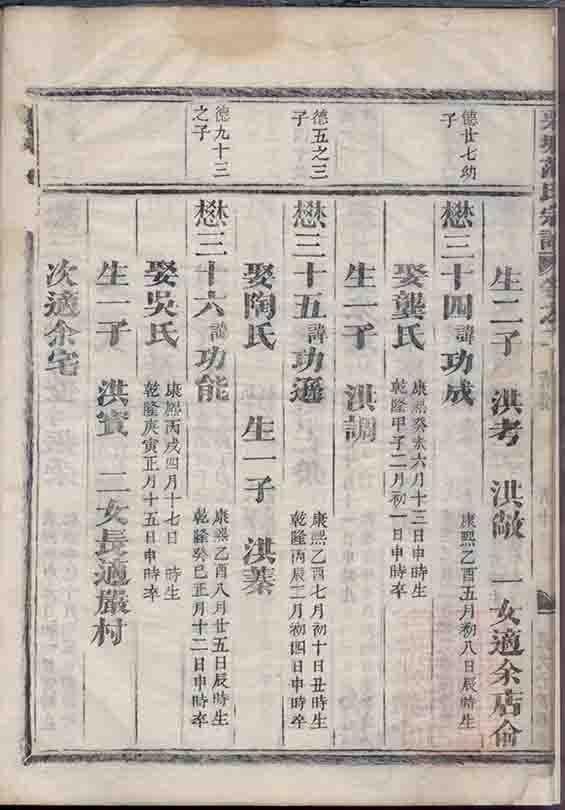 生二子 洪考 洪敞 一女適余店俞
德廿七幼
子
懋三十四諱功成 康熙乙酉五月初八日辰時生
娶龔氏 康熙癸亥六月十三日申時生
乾隆甲子二月初一日申時卒
生一子 洪調
德五之三
子
懋三十五諱功遜 康熙乙酉七月初十日丑時生
乾隆丙辰二月初四日申時卒
娶陶氏 生一子 洪蓁
德九十三
之子
懋三十六諱功能 康熙乙酉八月廿五日辰時生
乾隆癸巳正月十二日申時卒
娶吳氏 康熙丙戌四月十七日 時生
乾隆庚寅正月十五日申時卒
生一子 洪賓 二女長適嚴村
次適余宅